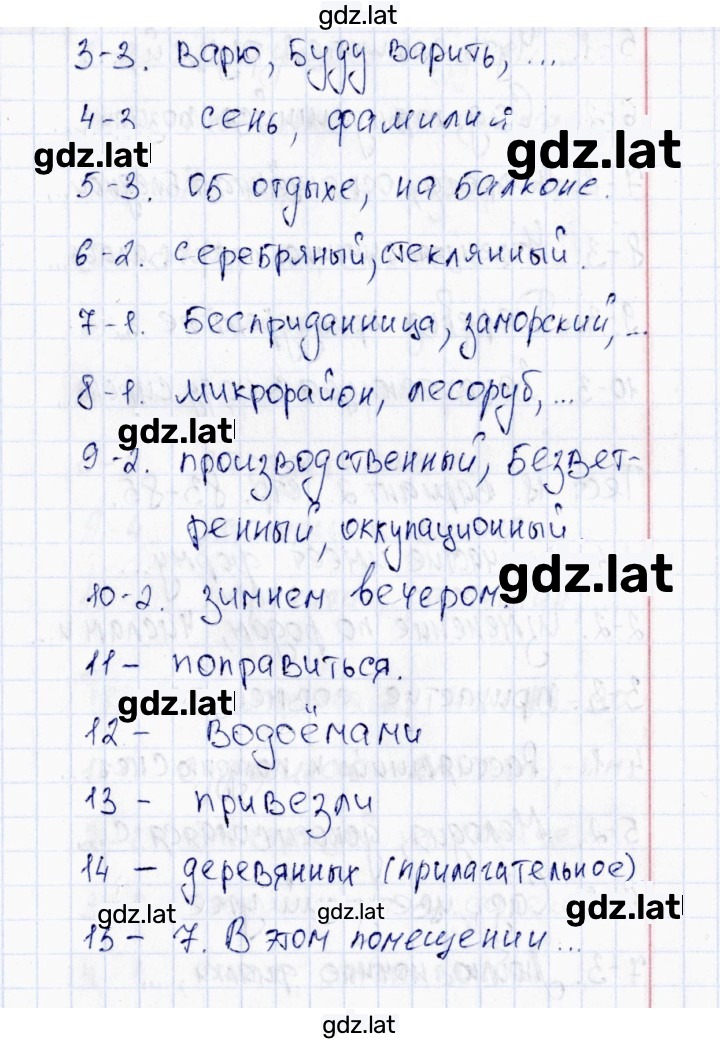 gdz.lat
3-3. Варю, буду варить, ...
4-3 сень, фамилий
gdz.lat
gdz.lat
5-3. Об отдыхе, на балконе.
6-2. серебряный, стеклянный.
7-1. Бесприданница, заморский, ...
8-1. микрорайон, лесоруб, ...
gdz.lat
9-2. производственный, безвет-
ренный, оккупационный.
gdz.lat
10-2. зимнем вечером.
11- поправиться.
gdz.lat
12- водоёмами
13 - привезли
14 - деревянных (прилагательное)
gdz.lat gdz.lat gdz.lat
15 - 7. В этом помещении ...
gdz.lat